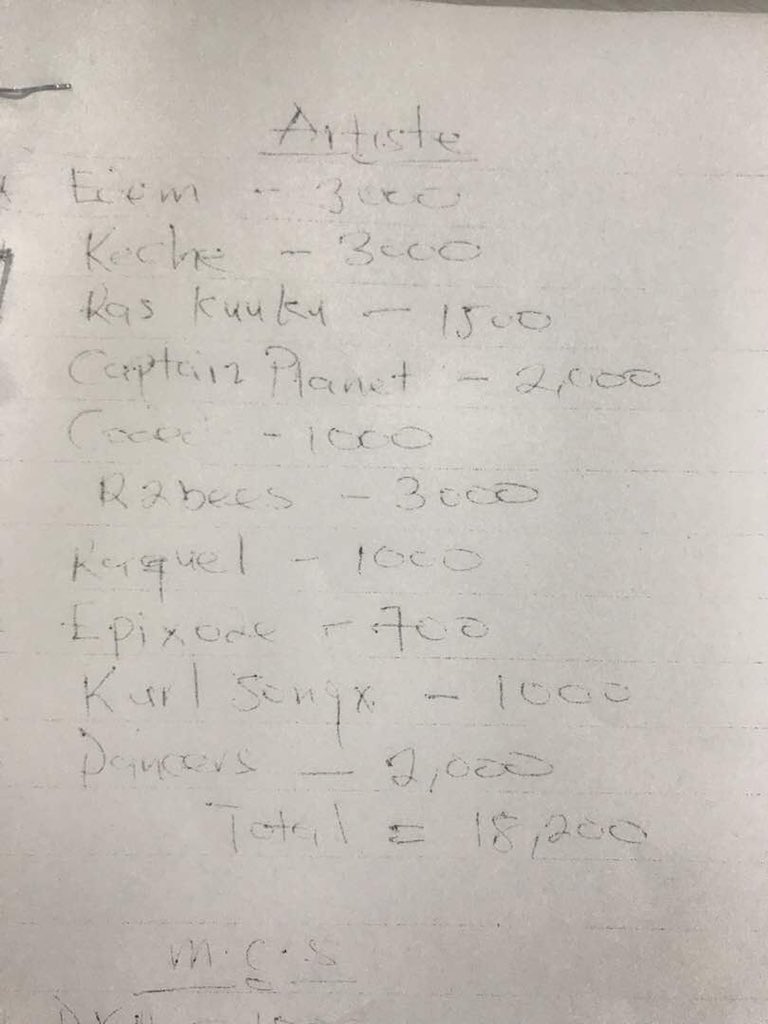 Artiste
Eiem - 3000
Keche - 3000
Ras Kuuku - 1500
Captain Planet - 2,000
- 1000
R2bees - 3000
Raquel - 1000
Epixode - 700
Kurl Songx - 1000
Dancers - 2,000
Total = 18,200
M.C.S